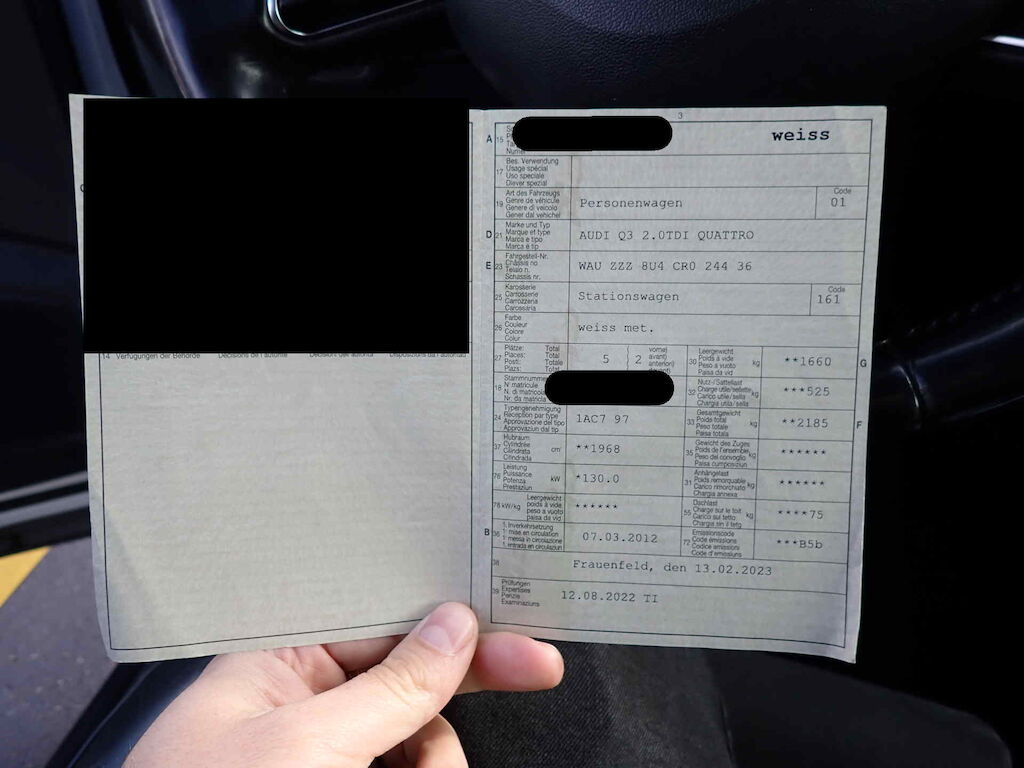 14 Verfügungen der Behörde Décisions de l'autorité Decisioni dell'autorità Disposiziuns da l'autoritad
3
A 15
weiss
17 Bes. Verwendung
Usage spécial
Uso speciale
Diever spezial
19 Art des Fahrzeugs
Genre de véhicule
Genere di veicolo
Gener dal vehichel
Personenwagen
Code
01
D 21 Marke und Typ
Marque et type
Marca e tipo
Marca e tip
AUDI Q3 2.0TDI QUATTRO
E 23 Fahrgestell-Nr.
Châssis no
Telaio n.
Schassis nr.
WAU ZZZ 8U4 CR0 244 36
25 Karosserie
Carrosserie
Carrozzeria
Carossaria
Stationswagen
Code
161
26 Farbe
Couleur
Colore
Colur
weiss met.
27 Plätze: Total
Places: Total
Posti: Totale
Plazs: Total
5 2 vorne)
avant)
anteriori)
davant)
30 Leergewicht
Poids à vide
Peso a vuoto
Paisa da vid
kg
**1660
G
18 Stammnummer
N° matricule
N. di matricola
Nr. da matricla
32 Nutz-/Sattellast
Charge utile/sellette
Carico utile/sella
Chargia utila/sella
kg
***525
24 Typengenehmigung
Réception par type
Approvazione del tipo
Approvaziun dal tip
1AC7 97
33 Gesamtgewicht
Poids total
Peso totale
Paisa totala
kg
**2185
F
37 Hubraum
Cylindrée
Cilindrata
Cilindrada
cm³
**1968
35 Gewicht des Zuges
Poids de l'ensemble
Peso del convoglio
Paisa cumposiziun
kg
******
76 Leistung
Puissance
Potenza
Prestaziun
kW
*130.0
31 Anhängelast
Poids remorquable
Carico rimorchiato
Chargia annexa
kg
******
78 kW/kg Leergewicht
poids à vide
peso a vuoto
paisa da vid
******
55 Dachlast
Charge sur le toit
Carico sul tetto
Chargia sin il tetg
kg
****75
B 36 1. Inverkehrsetzung
1re mise en circulation
1. messa in circolazione
1. entrada en circulaziun
07.03.2012
72 Emissionscode
Code émissions
Codice emissioni
Code d'emissiuns
***B5b
38
Frauenfeld, den 13.02.2023
39 Prüfungen
Expertises
Perizie
Examinaziuns
12.08.2022 TI